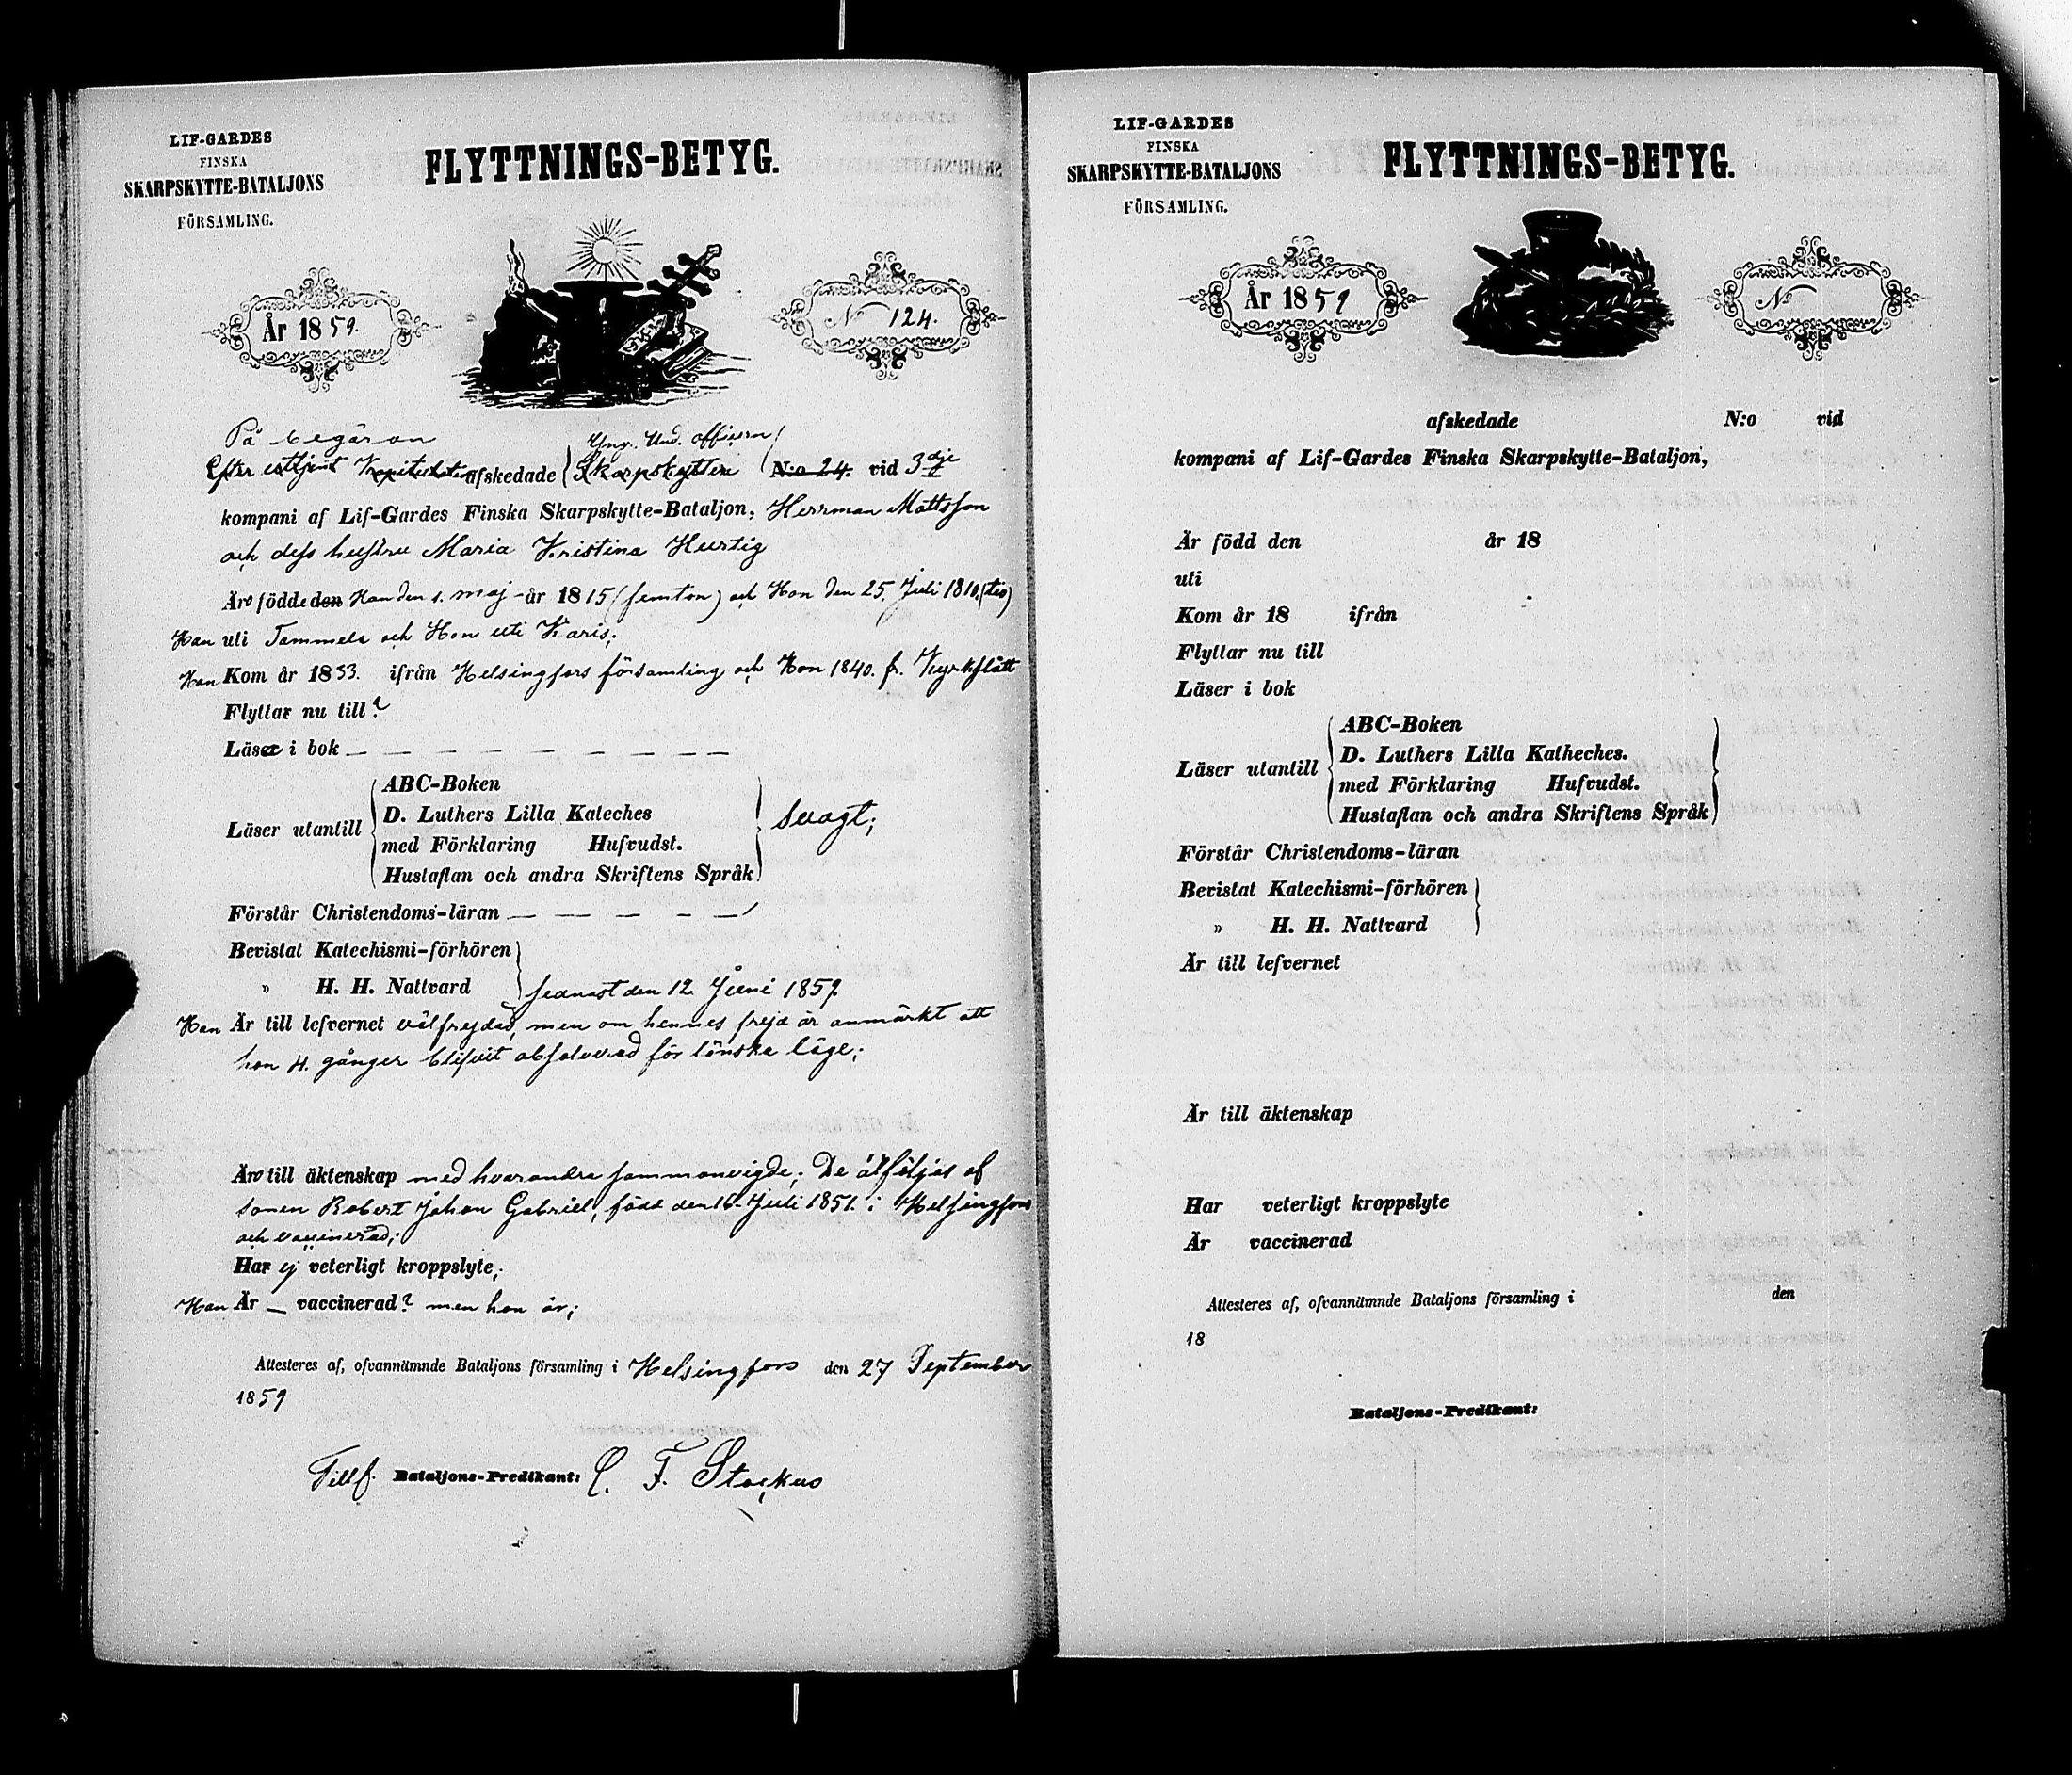 LIF-GARDES
FINSKA
SKARPSKYTTE-BATALJONS
FÖRSAMLING.
FLYTTNINGS-BETYG.
År 1859.
N 124.
På begäran
Yng. Und. officern
Efter uttjent Kapitulat. afskedade Skarpskytten N:o 24. vid 3dje
kompani af Lif-Gardes Finska Skarpskytte-Bataljon, Herrman Mattsson
och dess hustru Maria Kristina Hurtig
Äro födde den Han den 1. maj - år 1815 (femton) och Hon den 25. Juli 1810. (tio)
Han uti Tammela och Hon uti Karis;
Han Kom år 1833. ifrån Helsingfors församling och Hon 1840. fr. Kyrkslätt
Flyttar nu till?
Läser i bok — — — — — — — — —
ABC-Boken
D. Luthers Lilla Kateches
Läser utantill
med Förklaring Hufvudst.
Hustaflan och andra Skriftens Språk
svagt;
Förstår Christendoms-läran — — — — —
Bevistat Katechismi-förhören
" H. H. Nattvard
sednast den 12. Juni 1859.
Han Är till lefvernet välfrejdad, men om hennes frejd är anmärkt att
hon 4. gånger blifvit absolverad för lönska läge;
Äro till äktenskap med hvarandra sammanvigde; De åtföljas af
sonen Robert Johan Gabriel, född den 16. Juli 1851. i Helsingfors
och vaccinerad;
Har ej veterligt kroppslyte;
Han Är — vaccinerad? men hon är;
Attesteres af, ofvannämnde Bataljons församling i Helsingfors den 27 September
1859
Tillf. Bataljons-Predikant: C. F. Stockus
LIF-GARDES
FINSKA
SKARPSKYTTE-BATALJONS
FÖRSAMLING.
FLYTTNINGS-BETYG.
År 1859
N
afskedade N:o vid
kompani af Lif-Gardes Finska Skarpskytte-Bataljon,
Är född den år 18
uti
Kom år 18 ifrån
Flyttar nu till
Läser i bok
ABC-Boken
D. Luthers Lilla Katheches.
Läser utantill
med Förklaring Hufvudst.
Hustaflan och andra Skriftens Språk
Förstår Christendoms-läran
Bevistat Katechismi-förhören
" H. H. Nattvard
Är till lefvernet
Är till äktenskap
Har veterligt kroppslyte
Är vaccinerad
Attesteres af, ofvannämnde Bataljons församling i den
18
Bataljons-Predikant: